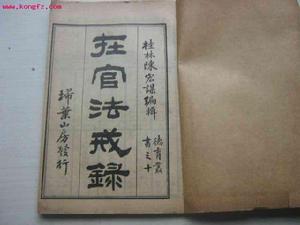 www.kongfz.com
桂林陳宏謀編輯
德育叢
書之十
在官法戒錄
掃葉山房發行